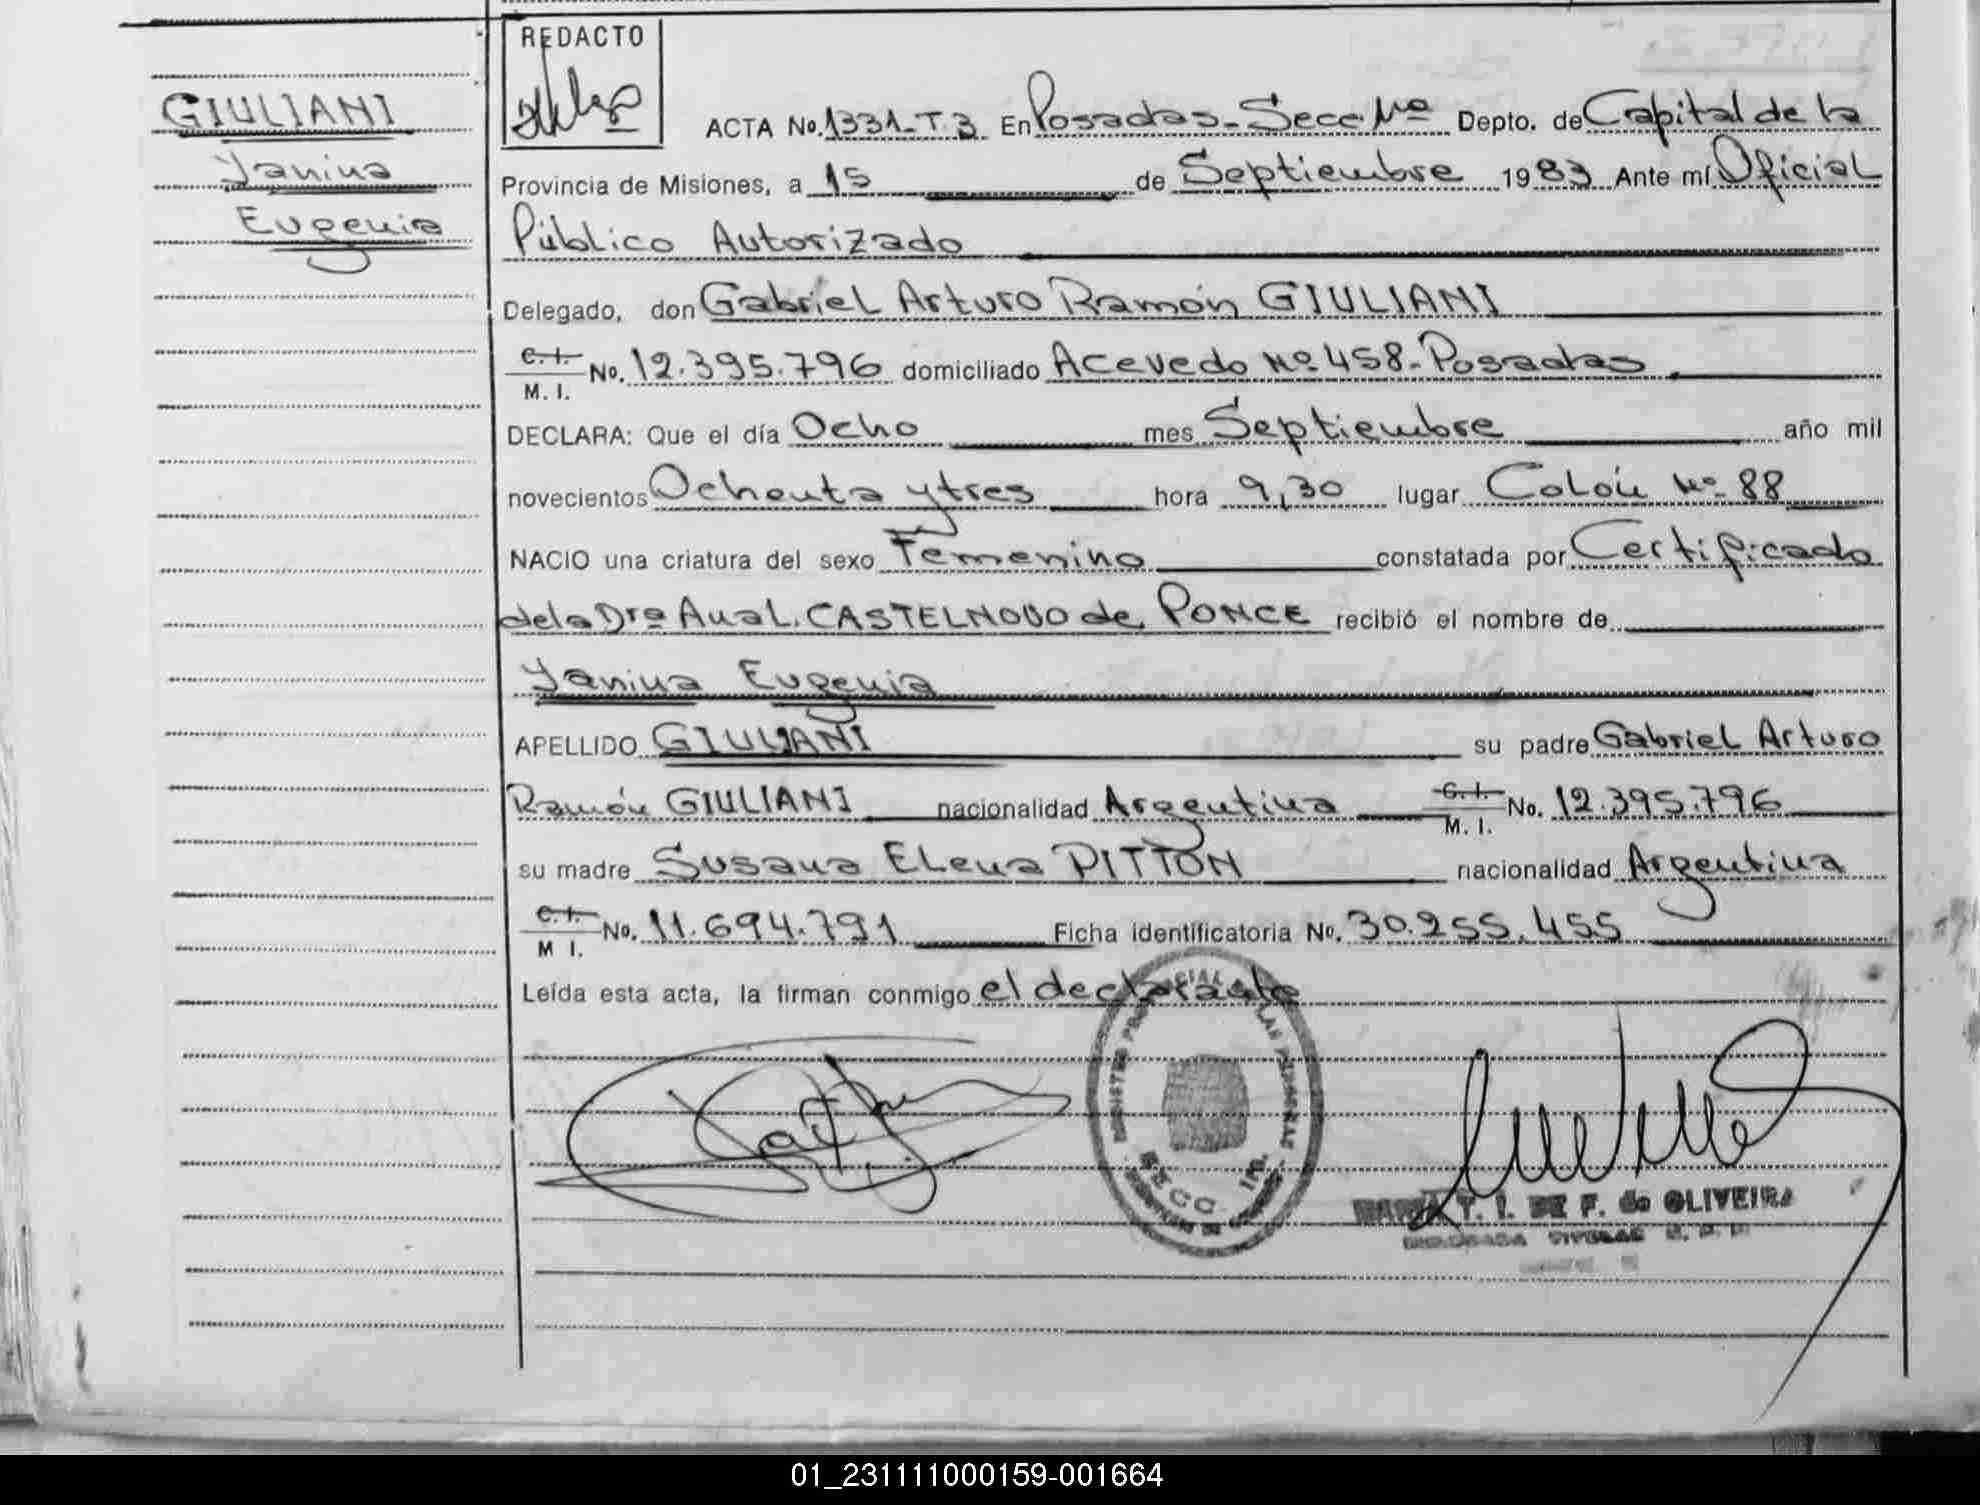 GIULIANI
Yanina
Eugenia
REDACTO
ACTA No. 1331-T.3 En Posadas-Secc. 1ª Depto. de Capital de la
Provincia de Misiones, a 15 de Septiembre 1983 Ante mí Oficial
Público Autorizado
Delegado, don Gabriel Arturo Ramón GIULIANI
C.I.
M. I. No. 12.395.796 domiciliado Acevedo Nº 458-Posadas
DECLARA: Que el día Ocho mes Septiembre año mil
novecientos Ochenta y tres hora 9,30 lugar Colón Nº 88
NACIO una criatura del sexo Femenino constatada por Certificado
de la Drª Ana L. CASTELNOVO de PONCE recibió el nombre de
Yanina Eugenia
APELLIDO GIULIANI su padre Gabriel Arturo
Ramón GIULIANI nacionalidad Argentina C.I. M. I. No. 12.395.796
su madre Susana Elena PITTON nacionalidad Argentina
C.I.
M I. No. 11.694.791 Ficha identificatoria No. 30.255.455
Leída esta acta, la firman conmigo el declarante
SECC. 1ra.
MARIA T. I. DE F. de OLIVEIRA
TITULAR
01_231111000159-001664